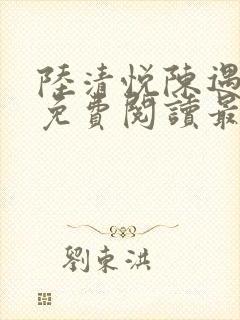 陸清悅陳遇
免費閱讀最
劉東洪